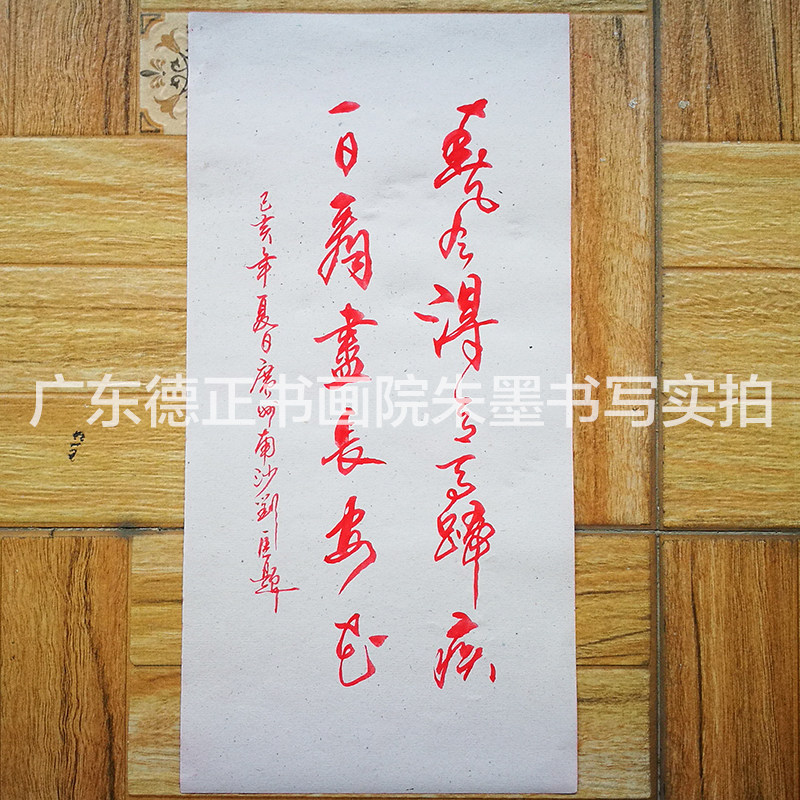 春风得意马蹄疾
一日看尽长安花
己亥年夏日广州南沙刘一匡题
广东德正书画院朱墨书写实拍